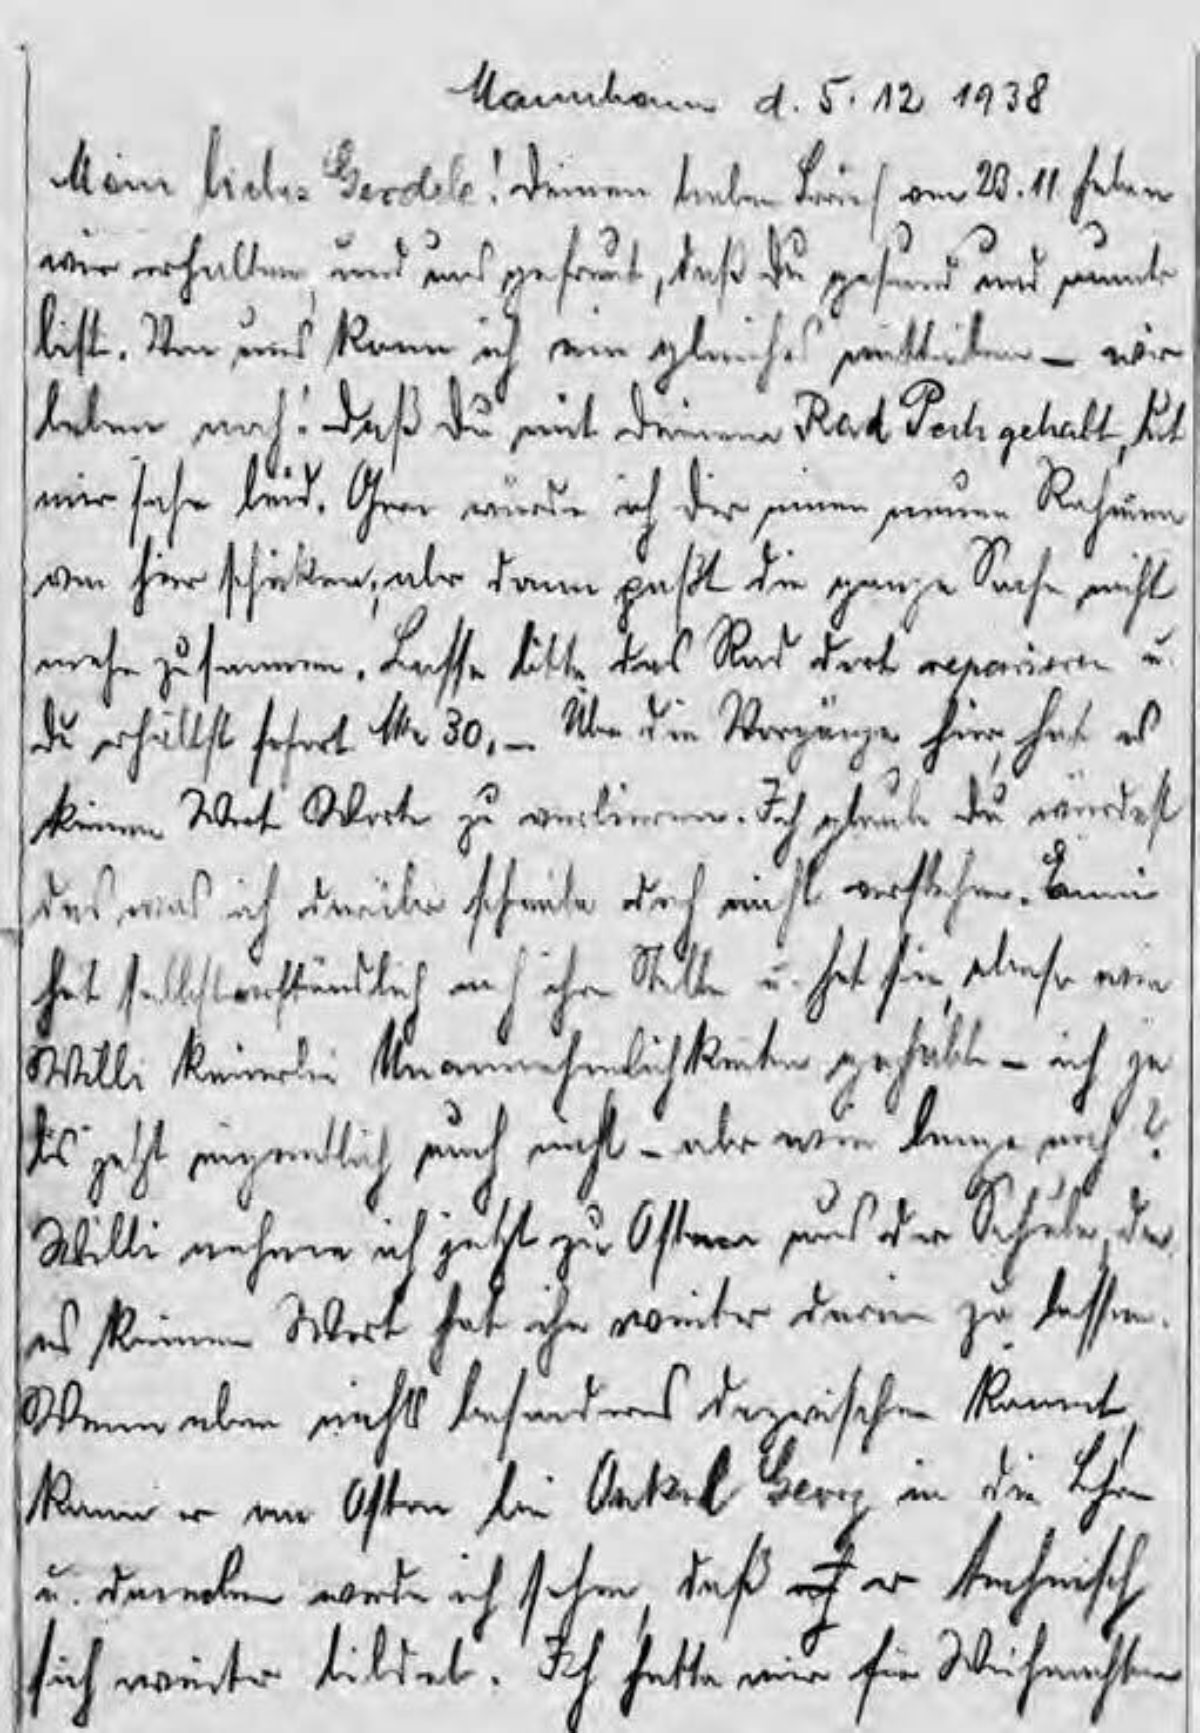 Mannheim d. 5.12 1938
Mein liebes Gerdele! Deinen lieben Brief vom 23.11 haben
wir erhalten und uns gefreut, daß Du gesund und munter
bist. Von uns kann ich ein gleiches mitteilen – wir
leben noch! Daß Du mit Deinem Rad Pech gehabt, tut
mir sehr leid. Gern würde ich Dir einen neuen Rahmen
von hier schicken, aber dann paßt die ganze Sache nicht
mehr zusammen. Lasse bitte das Rad dort reparieren u.
Du erhältst sofort Mk 30,–. Über die Vorgänge hier, hat es
keinen Wert Worte zu verlieren. Ich glaube Du würdest
das was ich darüber schreibe doch nicht verstehen. Emmi
hat selbstverständlich noch ihre Stelle u. hat sie, ebenso wie
Willi keinerlei Unannehmlichkeiten gehabt – ich ja
bis jetzt eigentlich auch nicht – aber wie lange noch?
Willi nehme ich jetzt zu Ostern aus der Schule, da
es keinen Wert hat ihn weiter darin zu lassen.
Wenn eben nichts besonderes dazwischen kommt,
kann er an Ostern bei Onkel Georg in die Lehre
u. daneben werde ich sehen, daß er technisch
sich weiter bildet. Ich hatte mir für Weihnachten